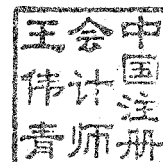 中国注册
会计师
王伟青